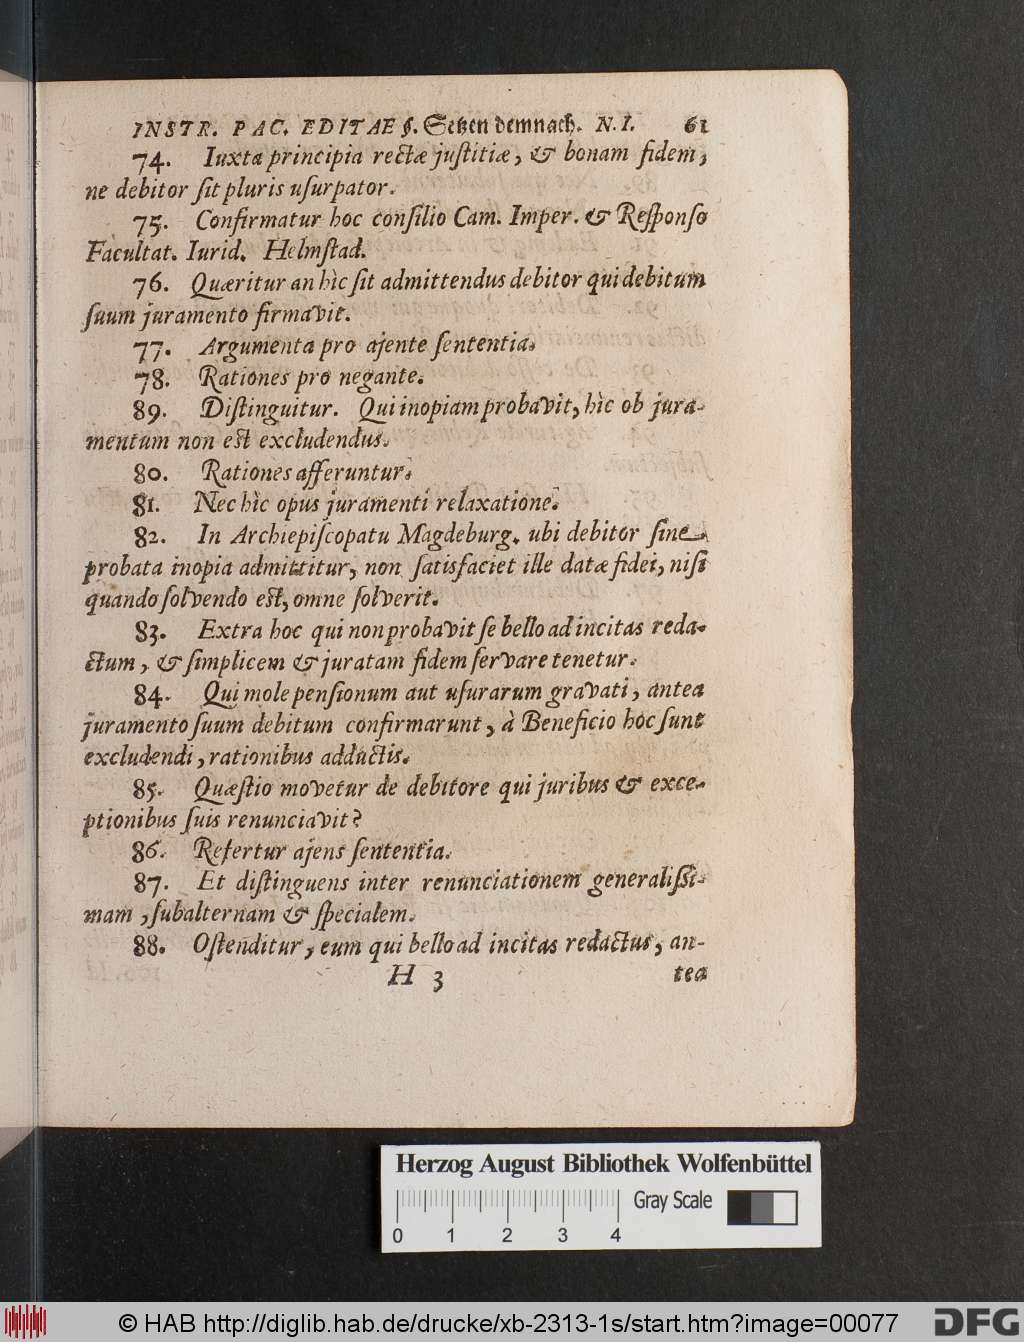 INSTR. PAC. EDITAE §. Setzen demnach. N. I. 61
74. Iuxta principia rectæ justitiæ, & bonam fidem,
ne debitor ſit pluris uſurpator.
75. Confirmatur hoc conſilio Cam. Imper. & Reſponſo
Facultat. Iurid. Helmſtad.
76. Quæritur an hìc ſit admittendus debitor qui debitum
ſuum juramento firmavit.
77. Argumenta pro ajente ſententia.
78. Rationes pro negante.
89. Diſtinguitur. Qui inopiam probavit, hìc ob jura-
mentum non eſt excludendus.
80. Rationes afferuntur.
81. Nec hìc opus juramenti relaxatione.
82. In Archiepiſcopatu Magdeburg. ubi debitor ſine
probata inopia admittitur, non ſatisfaciet ille datæ fidei, niſi
quando ſolvendo eſt, omne ſolverit.
83. Extra hoc qui non probavit ſe bello ad incitas reda-
ctum, & ſimplicem & juratam fidem ſervare tenetur.
84. Qui mole penſionum aut uſurarum gravati, antea
juramento ſuum debitum confirmarunt, à Beneficio hoc ſunt
excludendi, rationibus adductis.
85. Quæſtio movetur de debitore qui juribus & exce-
ptionibus ſuis renunciavit?
86. Refertur ajens ſententia.
87. Et diſtinguens inter renunciationem generaliſſi-
mam, ſubalternam & ſpecialem.
88. Oſtenditur, eum qui bello ad incitas redactus, an-
H 3 tea
Herzog August Bibliothek Wolfenbüttel
Gray Scale
0 1 2 3 4
© HAB http://diglib.hab.de/drucke/xb-2313-1s/start.htm?image=00077
DFG